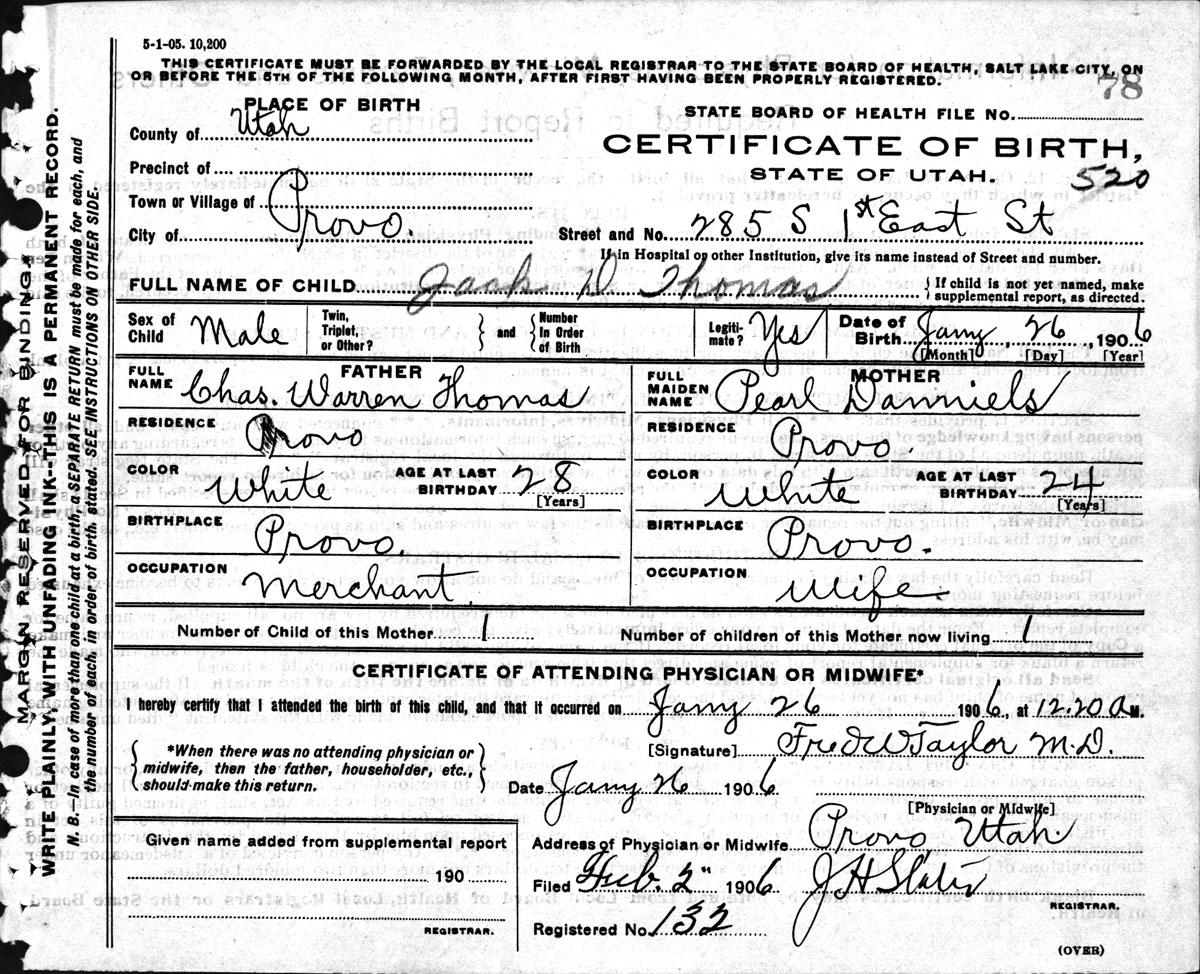 5-1-05. 10,200
THIS CERTIFICATE MUST BE FORWARDED BY THE LOCAL REGISTRAR TO THE STATE BOARD OF HEALTH, SALT LAKE CITY, ON
OR BEFORE THE 5TH OF THE FOLLOWING MONTH, AFTER FIRST HAVING BEEN PROPERLY REGISTERED.
78
PLACE OF BIRTH
County of Utah
Precinct of
Town or Village of
City of Provo.
STATE BOARD OF HEALTH FILE No.
CERTIFICATE OF BIRTH,
STATE OF UTAH.
520
Street and No. 285 S 1st East St
If in Hospital or other Institution, give its name instead of Street and number.
FULL NAME OF CHILD Jack D Thomas
If child is not yet named, make
supplemental report, as directed.
Sex of Child Male
Twin, Triplet, or Other?
and Number In Order of Birth
Legiti-mate? Yes
Date of Birth Jany 26, 1906
[Month] [Day] [Year]
FATHER
FULL NAME Chas. Warren Thomas
RESIDENCE Provo
COLOR White
AGE AT LAST BIRTHDAY 28
[Years]
BIRTHPLACE Provo.
OCCUPATION Merchant
MOTHER
FULL MAIDEN NAME Pearl Danniels
RESIDENCE Provo.
COLOR White
AGE AT LAST BIRTHDAY 24
[Years]
BIRTHPLACE Provo.
OCCUPATION Wife
Number of Child of this Mother 1
Number of children of this Mother now living 1
CERTIFICATE OF ATTENDING PHYSICIAN OR MIDWIFE*
I hereby certify that I attended the birth of this child, and that it occurred on Jany 26 1906, at 12.20 A M.
*When there was no attending physician or
midwife, then the father, householder, etc.,
should make this return.
[Signature] Fred W Taylor M.D.
Date Jany 26 1906
[Physician or Midwife]
Address of Physician or Midwife Provo, Utah.
Given name added from supplemental report
190
REGISTRAR.
Filed Feb. 2" 1906
J H Slater
REGISTRAR.
Registered No. 132
(OVER)
MARGIN RESERVED FOR BINDING
WRITE PLAINLY, WITH UNFADING INK--THIS IS A PERMANENT RECORD.
N. B.--In case of more than one child at a birth, a SEPARATE RETURN must be made for each, and
the number of each, in order of birth, stated. SEE INSTRUCTIONS ON OTHER SIDE.